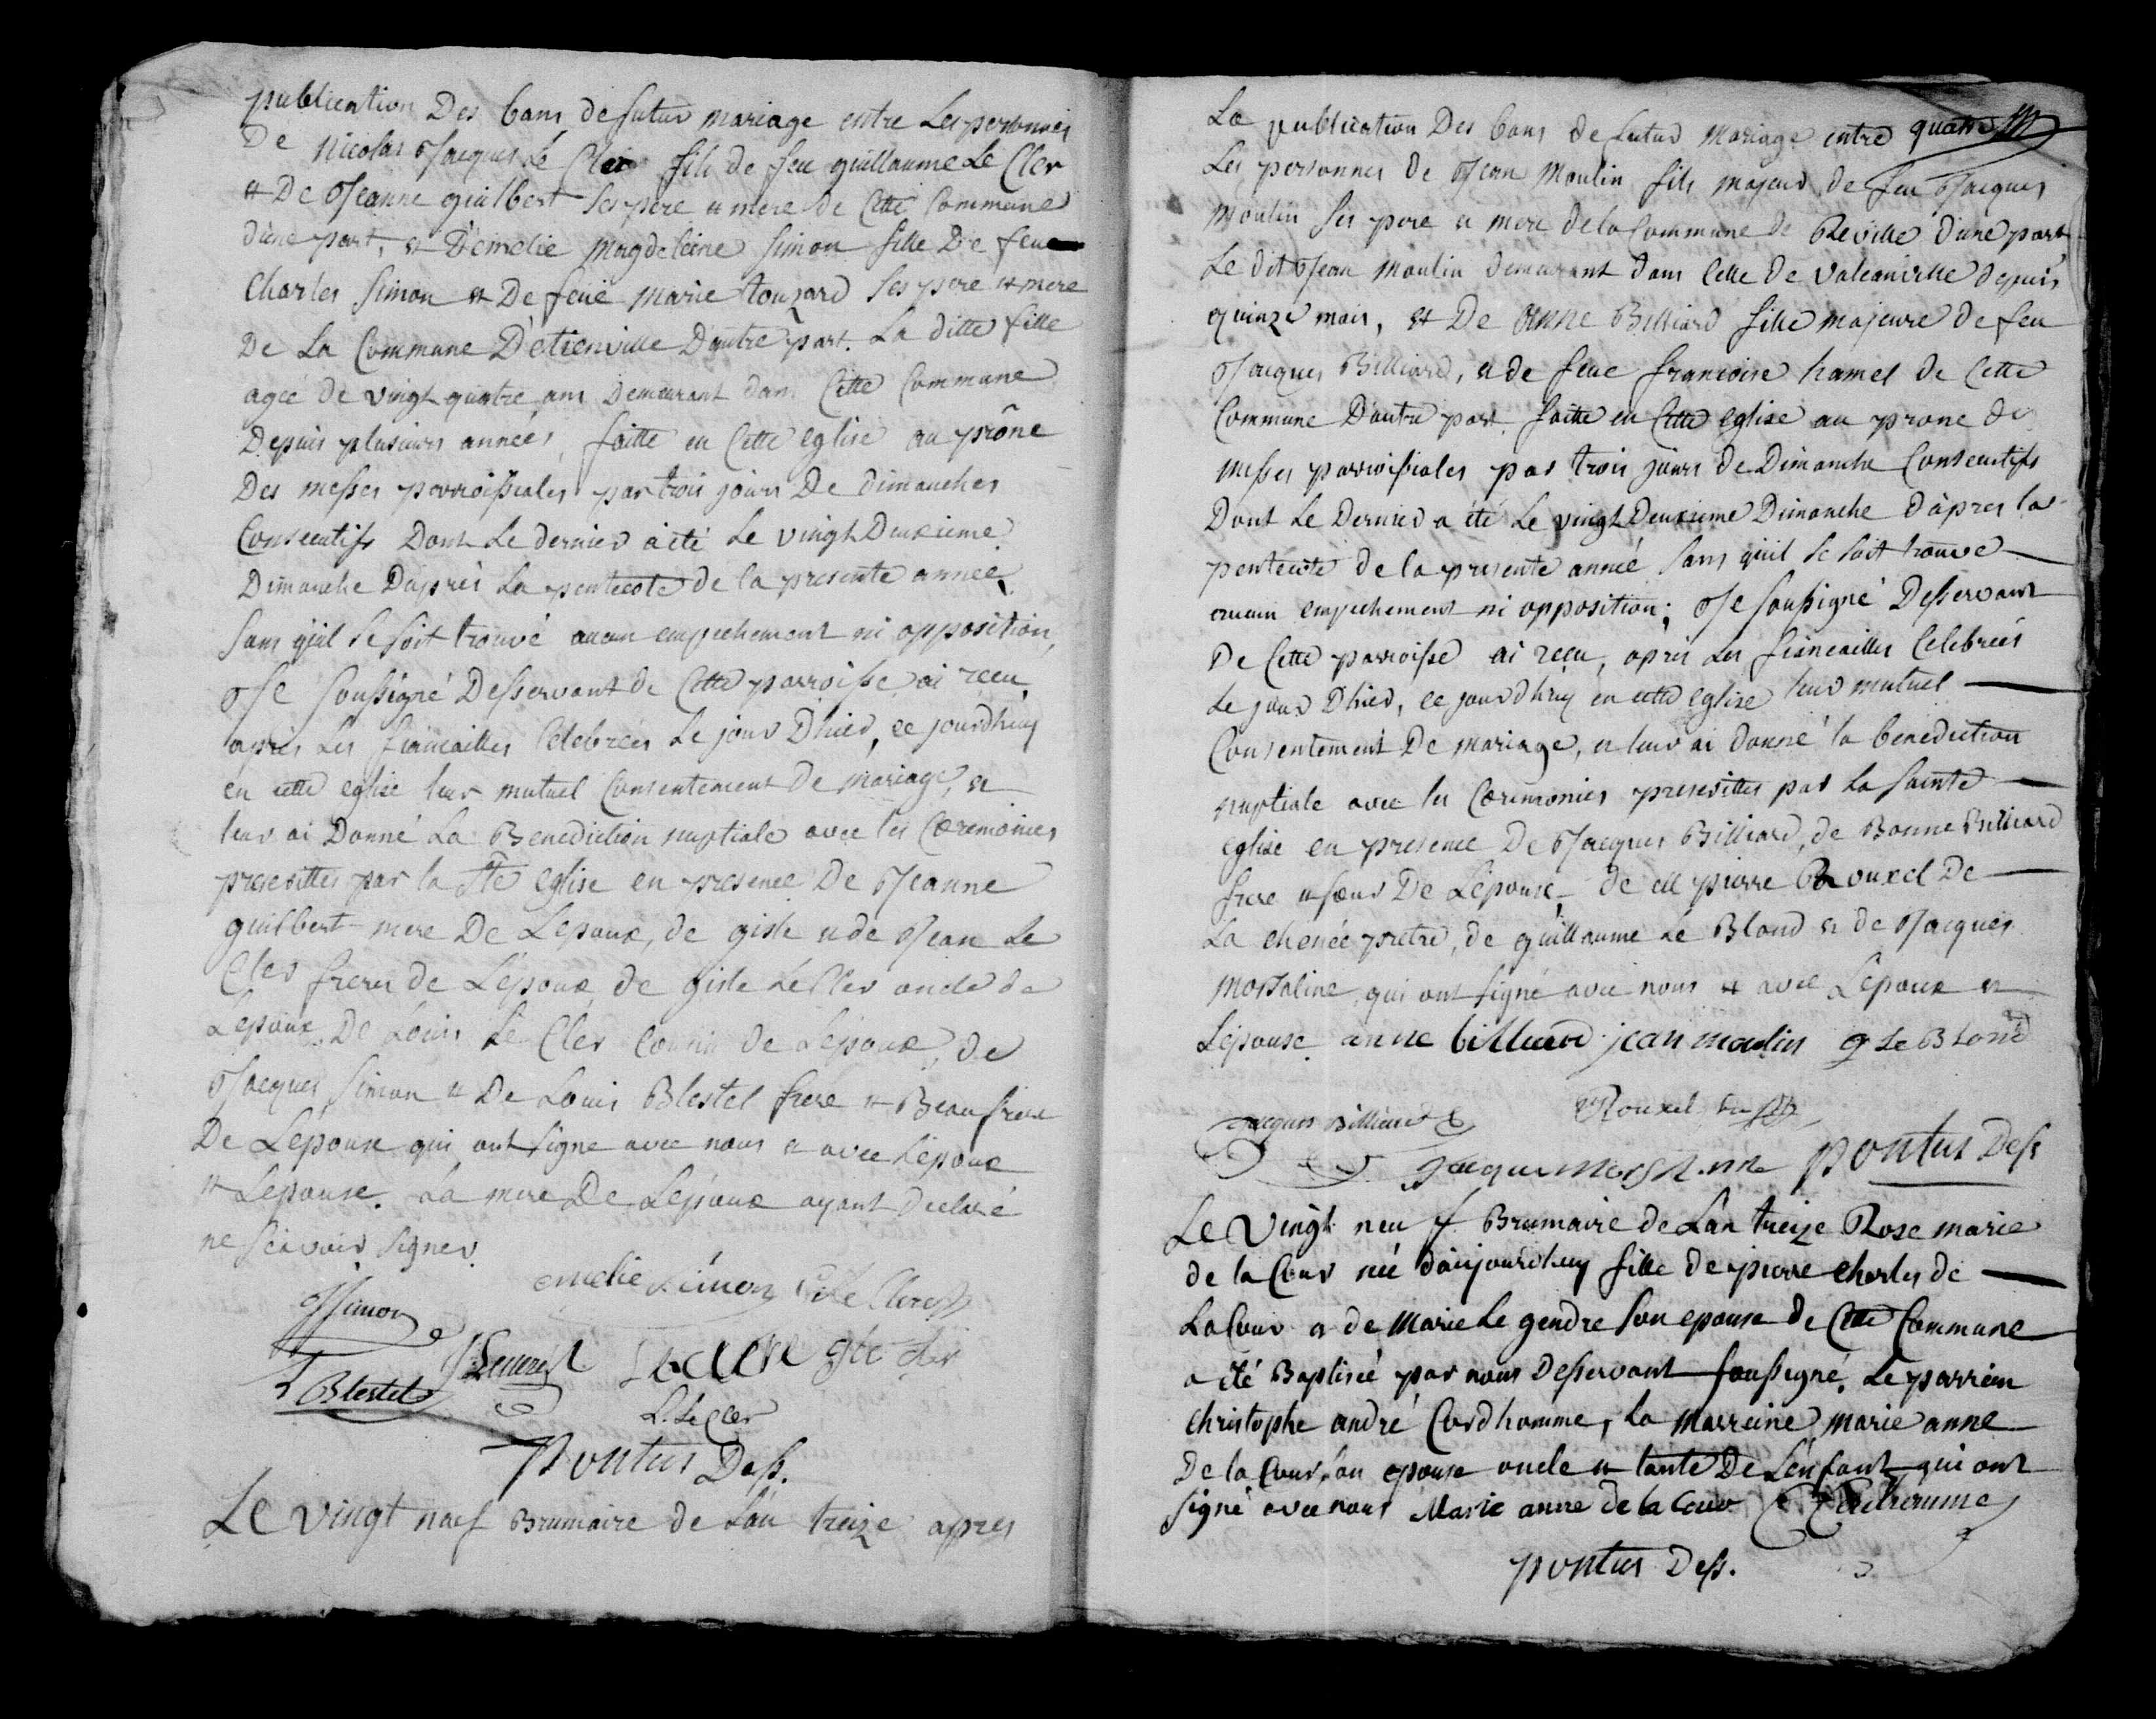 publication Des bans de futur mariage entre Les personnes
De Nicolas Jacques Le Cler fils de feu guillaume Le Cler
et De Jeanne guilbert ses pere et mere de Cette Commune
d'une part, et D'emelie Magdeleine Simon fille De feu
Charles Simon et De feue Marie touzard ses pere et mere
De La Commune D'etienville D'autre part. La ditte fille
agée de vingt quatre ans Demeurant dans Cette Commune
Depuis plusieurs années, faitte en Cette eglise au prône
Des messes parroissiales par trois jours De dimanches
Consecutifs Dont Le dernier a été Le vingt Deuxieme
Dimanche D'après La pentecote de la presente année
sans qu'il se soit trouvé aucun empechement ni opposition,
Je soussigné Desservant de Cette parroisse ai recu,
après Les fiancailles Celebrées Le jour D'hier, ce jourd'huy
en cette eglise leur mutuel Consentement De mariage, et
leur ai Donné La Benediction nuptiale avec les Ceremonies
prescrittes par la Ste eglise en presence De Jeanne
guilbert mere De L'epoux, de giste et de Jean Le
Cler freres de L'époux, de giste Le Cler oncle de
L'epoux, De Louis Le Cler Cousin de L'epoux, de
Jacques Simon et De Louis Blestel frere et Beaufrere
De L'epouse qui ont signé avec nous et avec L'époux
et L'epouse. La mere De L'epoux ayant declaré
ne scavoir signer.
emelie Simon Le Clerc
J Simon
Le Cler
L Blestel
L. Le Cler
Pontus Dess.
Le vingt neuf Brumaire de L'an treize après
quatre
La publication Des bans de futur mariage entre
Les personnes de Jean Moulin fils majeur de feu Jacques
Moulin ses pere et mere de la Commune de Reville d'une part
Le dit Jean Moulin demeurant dans Celle de Valcanville depuis
quinze mois, et De Anne Billiard fille majeure de feu
Jacques Billiard, et de feue francoise hamel de Cette
Commune D'autre part. faitte en Cette eglise au prone de
messes parroissiales par trois jours de Dimanche Consecutifs
Dont Le Dernier a été Le vingt Deuxieme Dimanche d'après la
pentecote de la presente année sans qu'il se soit trouvé
aucun empechement ni opposition; Je soussigné Desservant
De Cette parroisse ai reçu, après Les fiancailles Celebrées
Le jour D'hier, ce jourd'huy en cette eglise leur mutuel
Consentement De mariage, et leur ai donné la benediction
nuptiale avec les Ceremonies prescrittes par La sainte
eglise en presence De Jacques Billiard, de Bonne Billiard
frere et soeur De L'épouse, de M pierre Rouxel De
La chenée pretre, de guillaume Le Blond et de Jacques
Morsaline qui ont signé avec nous et avec L'époux et
L'épouse. anne billiard jean moulin g Le Blond
Jacques Billiard Rouxel
Jacques Morsaline Pontus Dess
Le Vingt neuf Brumaire de L'an treize Rose marie
de la Cour née d'aujourd'huy fille de pierre Charles de
La Cour et de Marie Le gendre son epouse de Cette Commune
a été Baptisée par nous Desservant soussigné. Le parrein
Christophe andré Cordhomme, La marreine marie anne
De la Cour son epouse oncle et tante De L'enfant qui ont
signé avec nous Marie anne de la Cour C Cordhomme
pontus Dess.